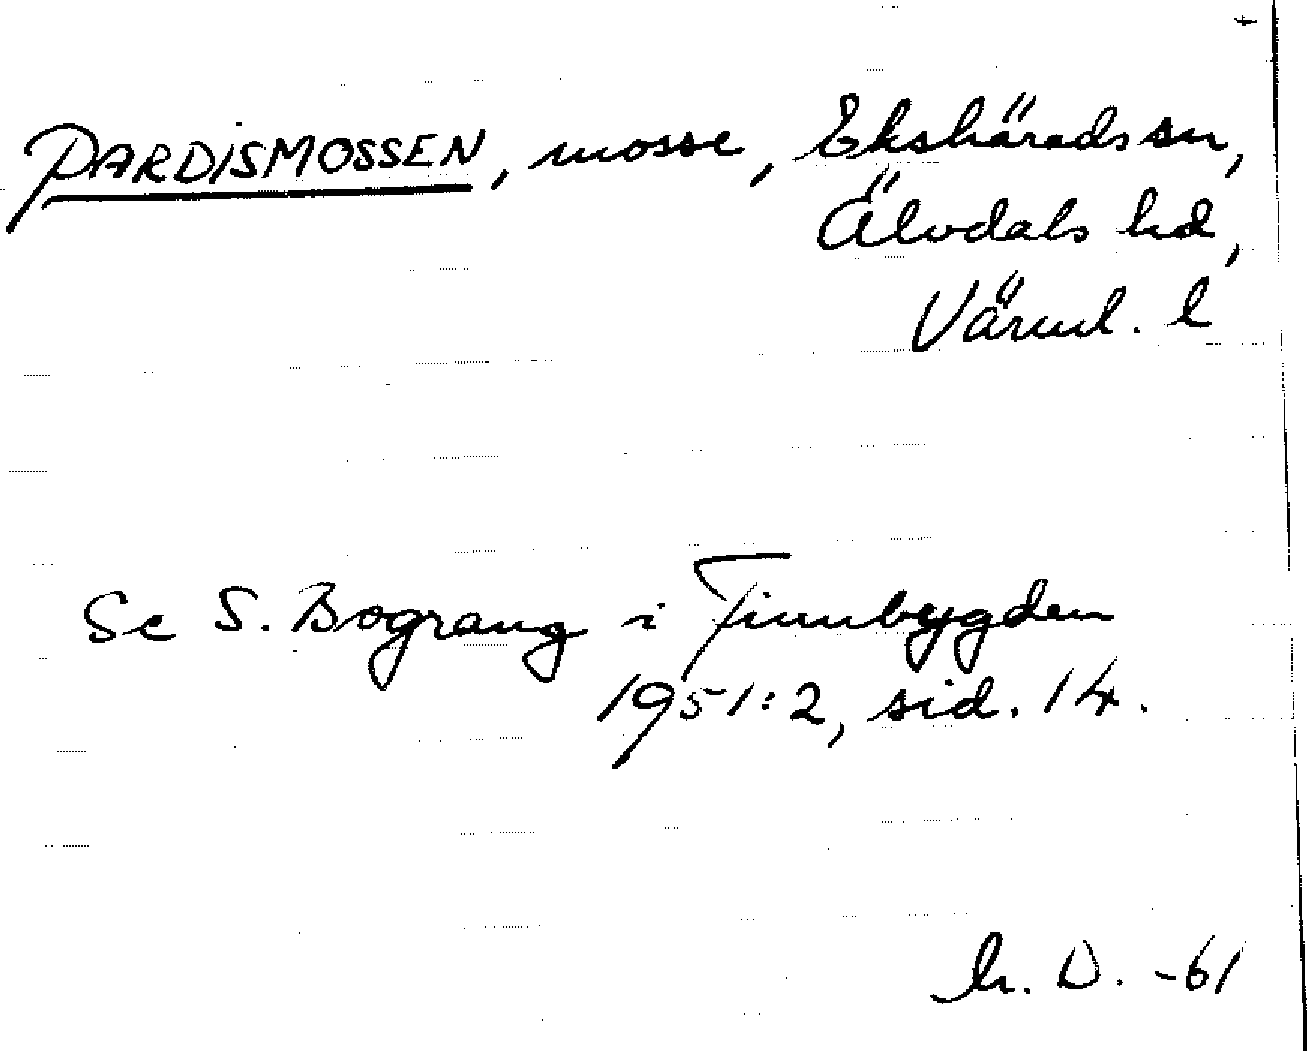 PARDISMOSSEN, mosse, Ekshärads sn,
Älvdals hd,
Värml. l
Se S. Bograng i Finnbygden
1951:2, sid. 14.
D. -61